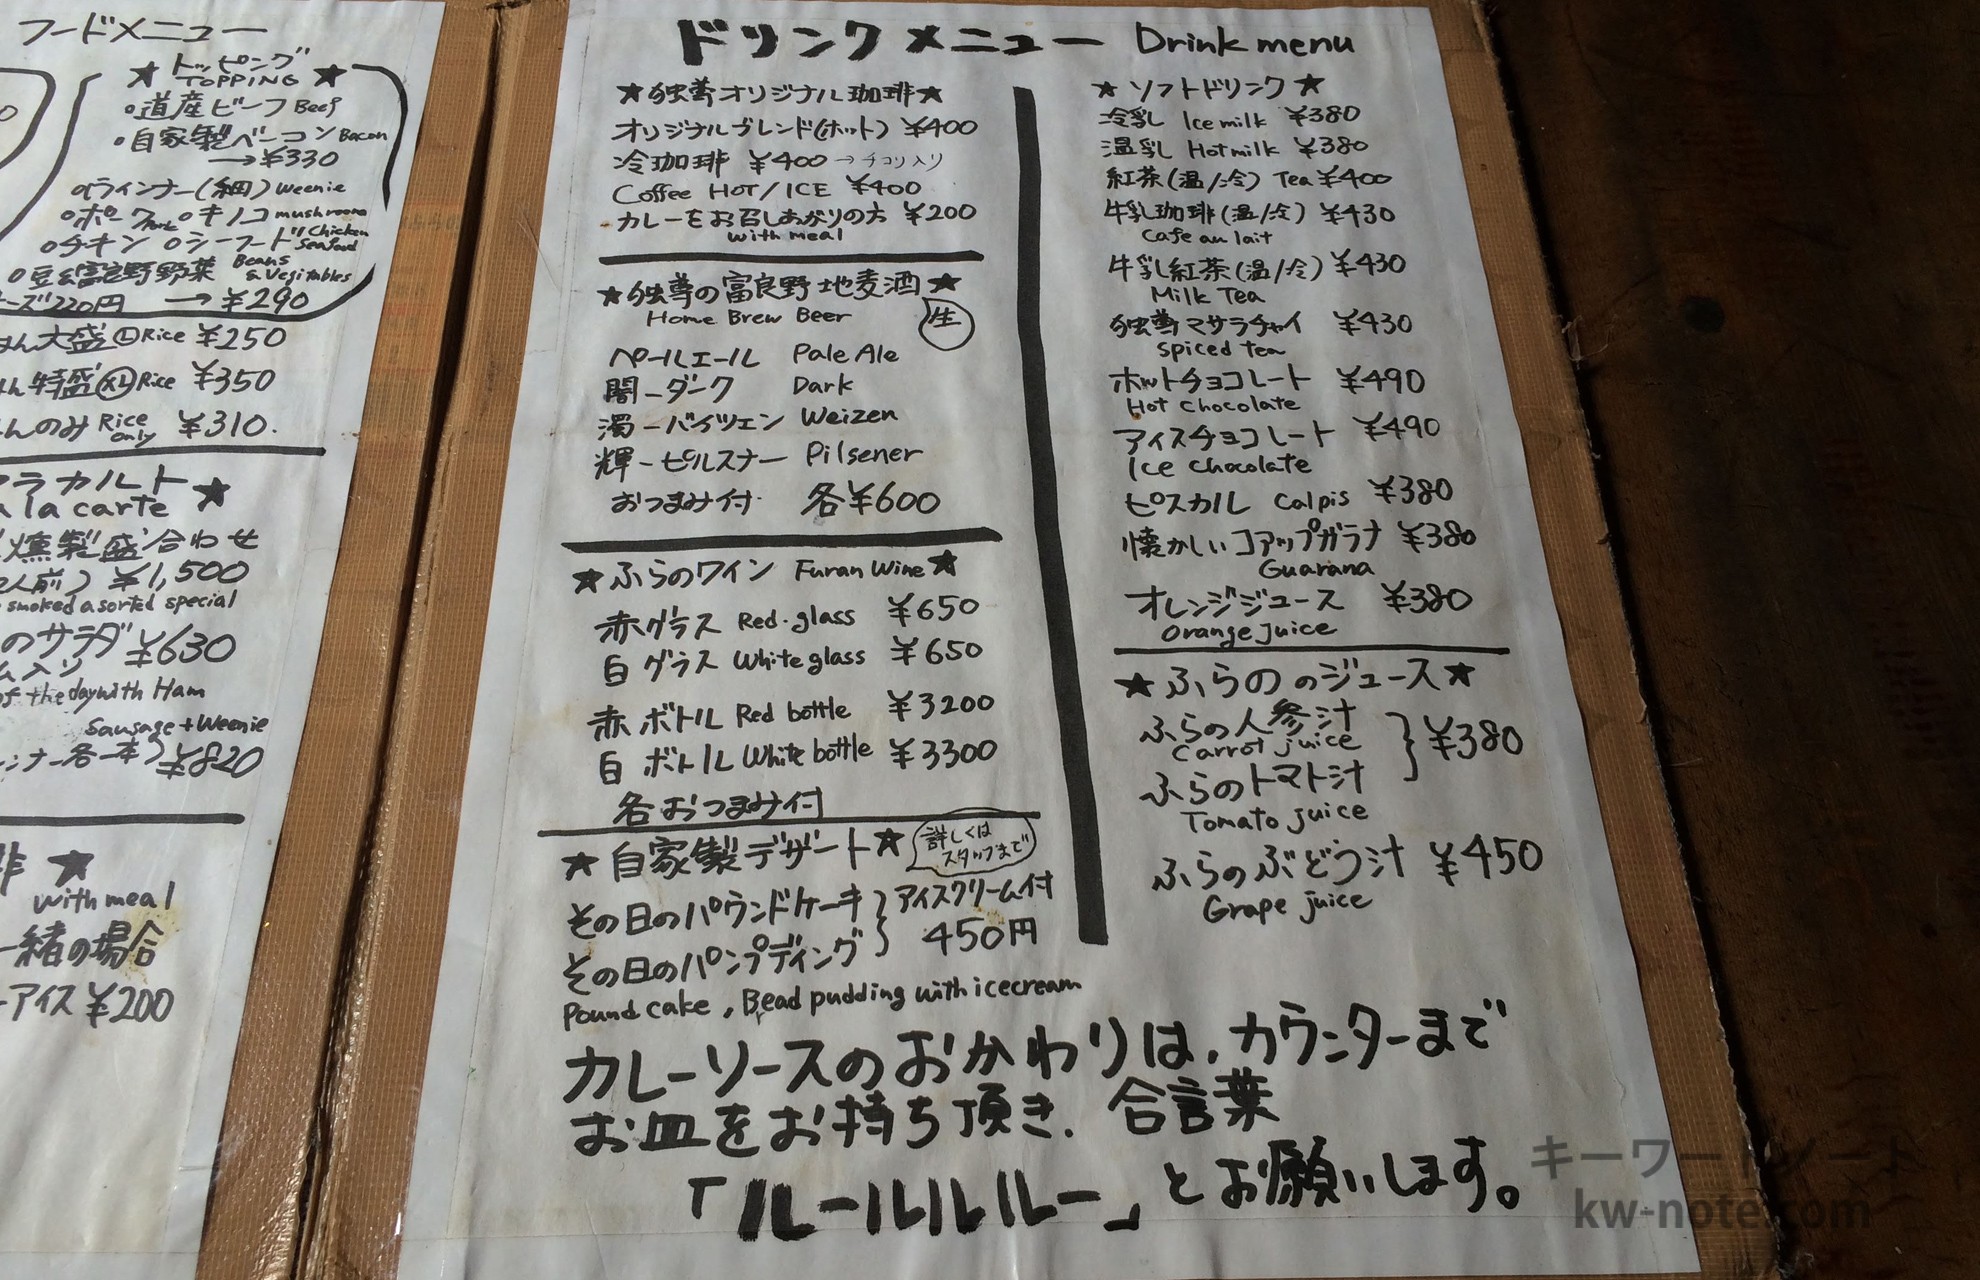 フードメニュー
★ トッピング ★
TOPPING
○道産ビーフ Beef
○自家製ベーコン Bacon
→¥330
○ラインナー(細) Weenie
○ポーク Pork ○キノコ mushroom
○チキン ○シーフード Chicken Seafood
○豆&富良野野菜 Beans & Vegitables
ーズ220円 →¥290
はん大盛 Ⓛ Rice ¥250
はん特盛 XL Rice ¥350
はんのみ Rice only ¥310.
アラカルト ★
a la carte
燻製盛合わせ
2人前) ¥1,500
smoked asorted special
のサラダ ¥630
ム入り
of the day with Ham
Sausage + Weenie
ンナー各一本) ¥820
啡 ★
with meal
一緒の場合
ーアイス ¥200
ドリンクメニュー Drink menu
★独尊オリジナル珈琲★
オリジナルブレンド(ホット) ¥400
冷珈琲 ¥400 →チコリ入り
Coffee HOT/ICE ¥400
カレーをお召しあがりの方 ¥200
with meal
★独尊の富良野地麦酒★
Home Brew Beer 生
ペールエール Pale Ale
闇ーダーク Dark
濁ーバイツェン Weizen
輝ーピルスナー Pilsener
おつまみ付 各¥600
★ふらのワイン Furan Wine★
赤グラス Red・glass ¥650
白グラス White glass ¥650
赤ボトル Red bottle ¥3200
白ボトル White bottle ¥3300
各おつまみ付
★自家製デザート★ 詳しくはスタッフまで
その日のパウンドケーキ } アイスクリーム付
その日のパンプディング } 450円
Pound cake, Bread pudding with icecream
★ソフトドリンク★
冷乳 Ice milk ¥380
温乳 Hot milk ¥380
紅茶(温/冷) Tea ¥400
牛乳珈琲(温/冷) ¥430
Cafe au lait
牛乳紅茶(温/冷) ¥430
Milk Tea
独尊マサラチャイ ¥430
Spiced tea
ホットチョコレート ¥490
Hot chocolate
アイスチョコレート ¥490
Ice chocolate
ピスカル Calpis ¥380
懐かしいコアップガラナ ¥380
Guarana
オレンジジュース ¥380
Orange juice
★ふらののジュース★
ふらの人参汁 } ¥380
Carrot juice
ふらのトマト汁
Tomato juice
ふらのぶどう汁 ¥450
Grape juice
カレーソースのおかわりは、カウンターまで
お皿をお持ち頂き、合言葉
「ルールルルー」とお願いします。
キーワードノート
kw-note.com